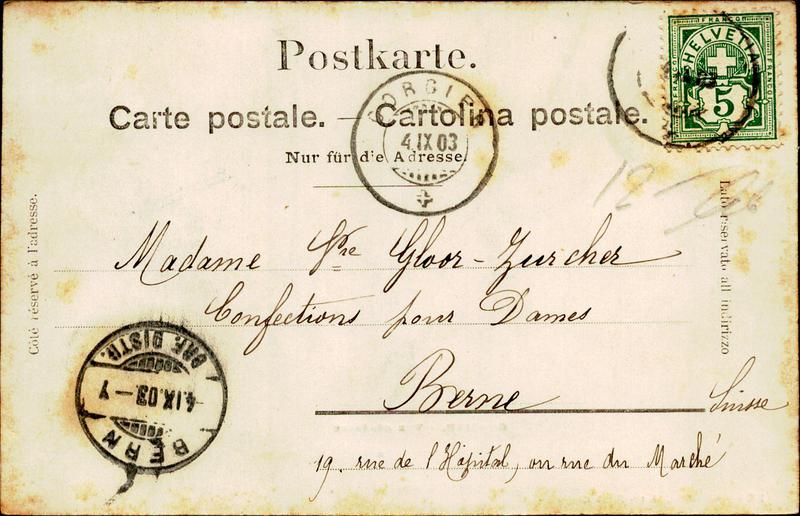 Postkarte.
Carte postale. — Cartolina postale.
Nur für die Adresse.
GORGIER
4.IX.03
FRANCO
HELVETIA
5
FRANCO
FRANCO
Côté réservé à l'adresse.
Lato riservato all indirizzo
12
Madame Vve Gloor-Zurcher
Confections pour Dames
Berne
Suisse
19. rue de l'Hôpital, ou rue du Marché
BERN
4.IX.03.-
BRF. DISTR.